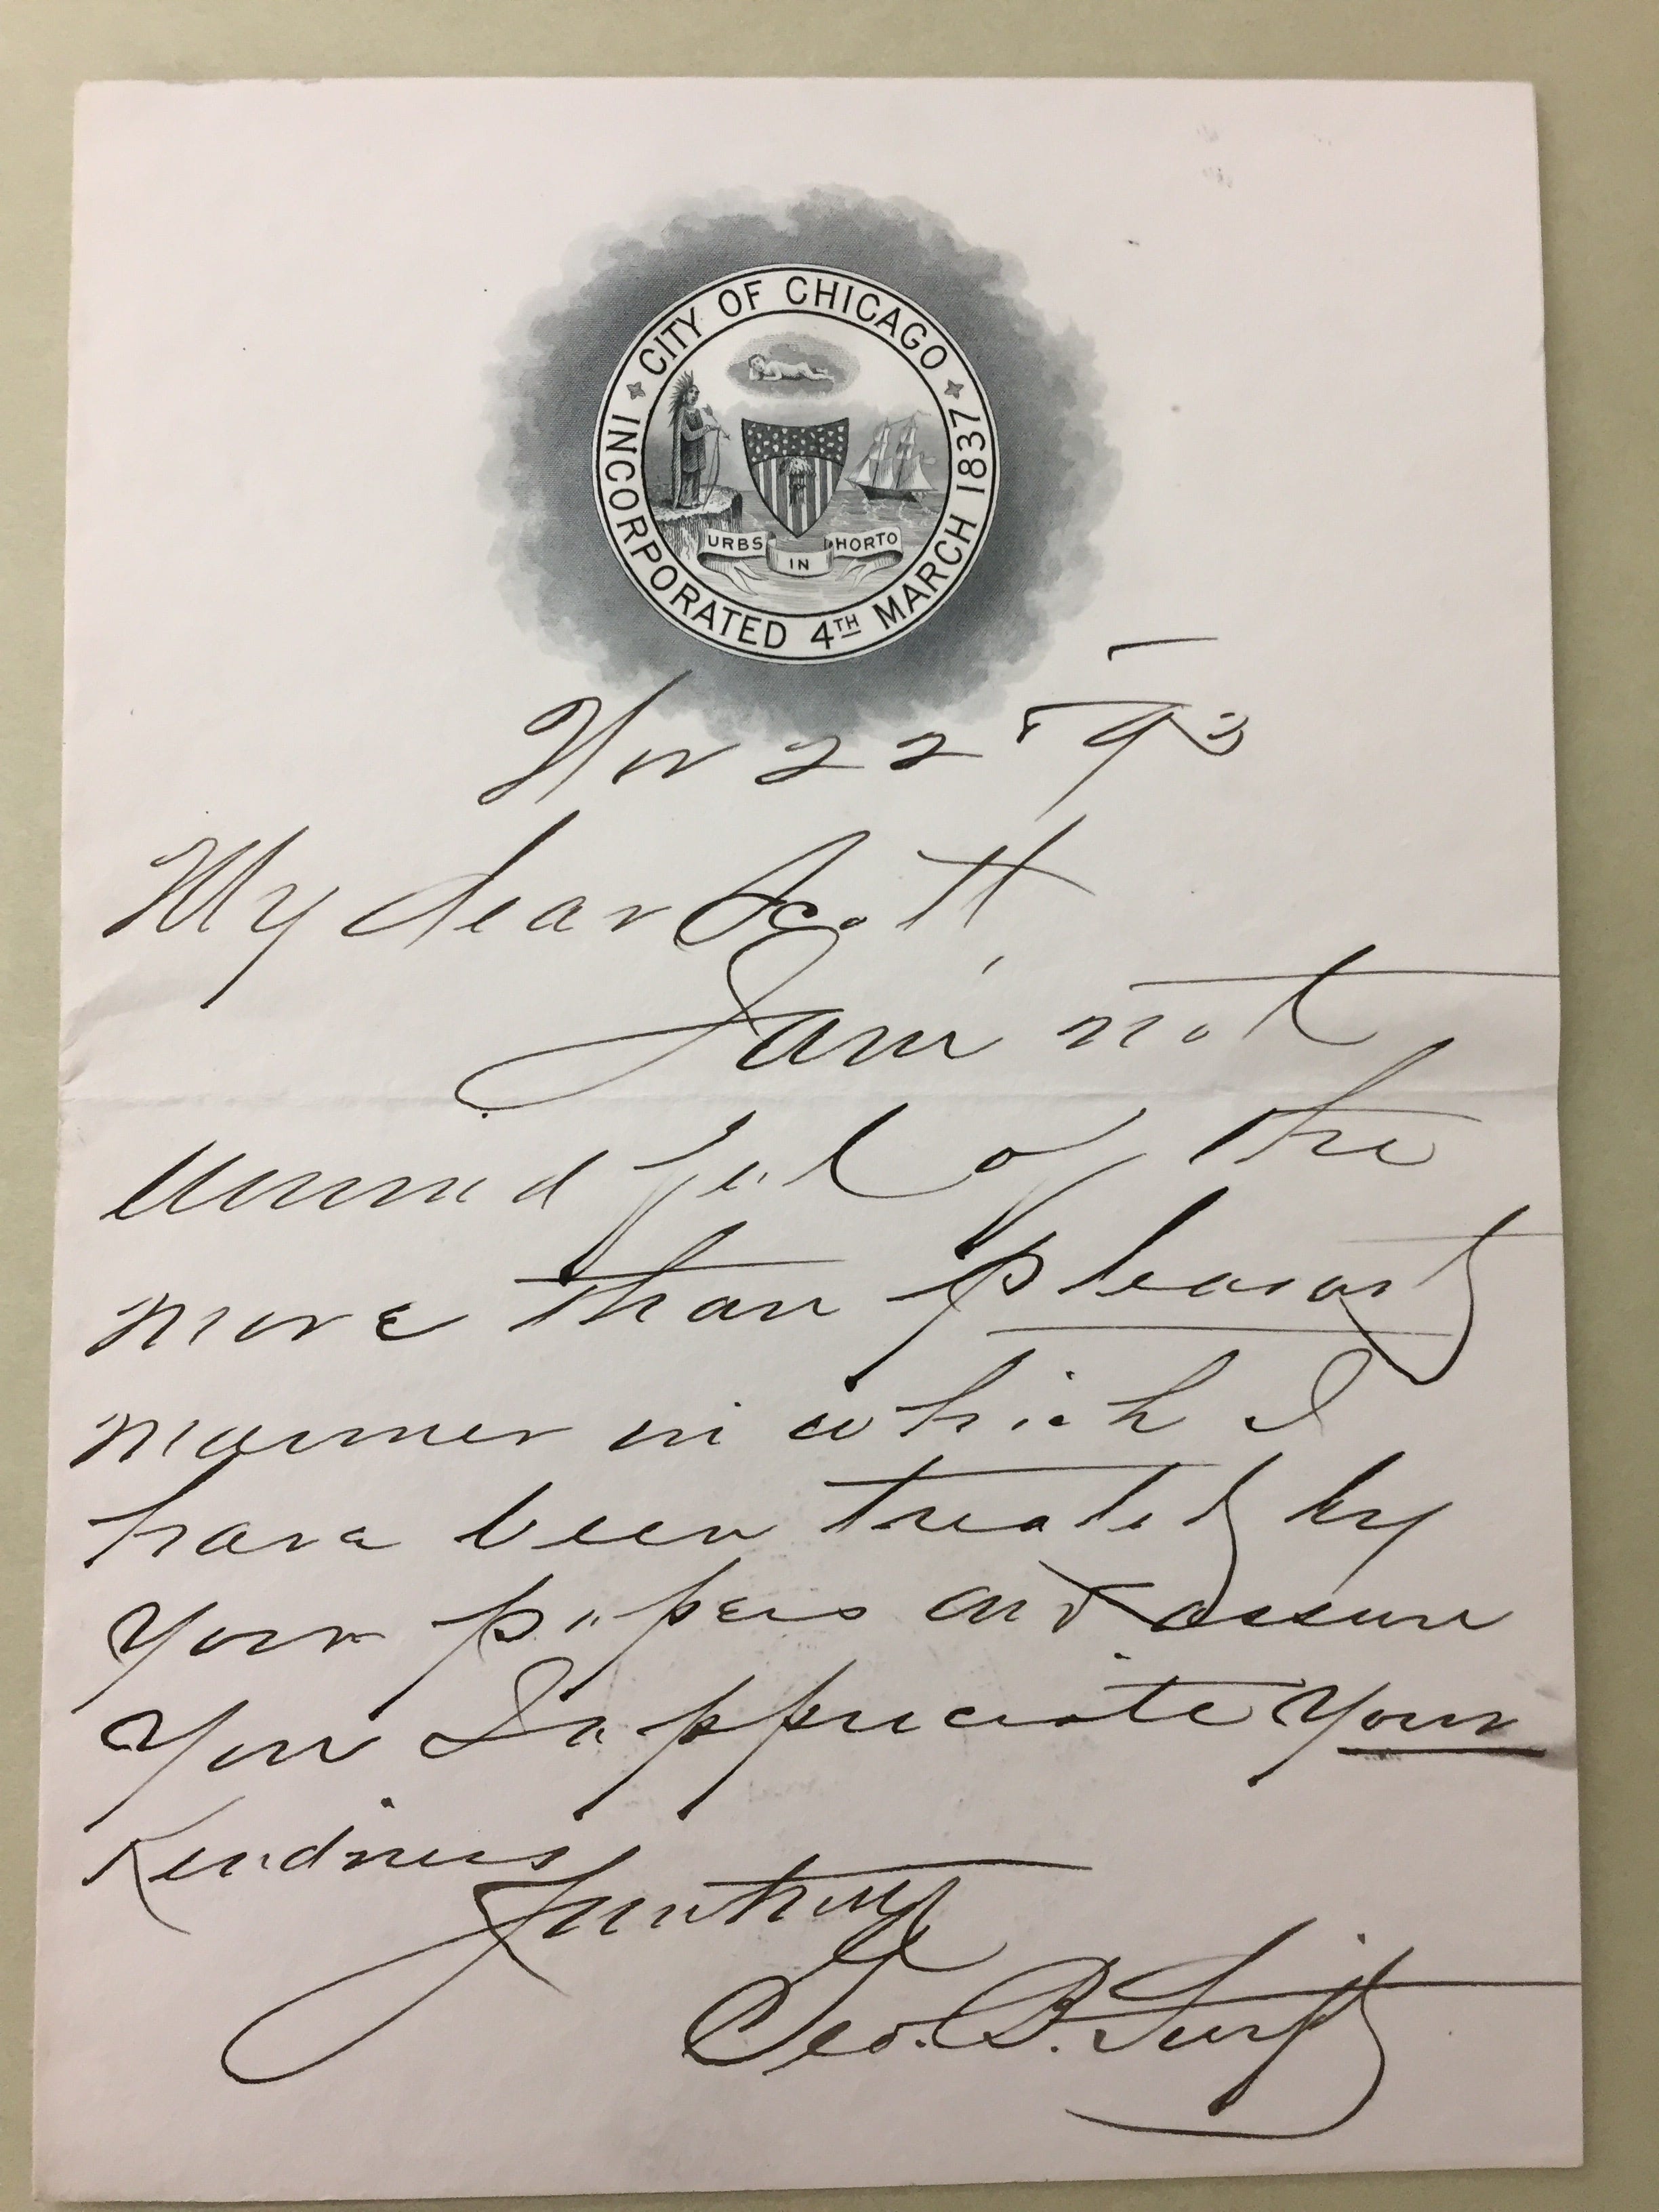 CITY OF CHICAGO
INCORPORATED 4TH MARCH 1837
URBS IN HORTO
Nov 22" 93
My dear Scott
I am not
unmindful of the
more than pleasant
manner in which I
have been treated by
your papers and assure
you I appreciate your
kindness
Geo. B. Swift